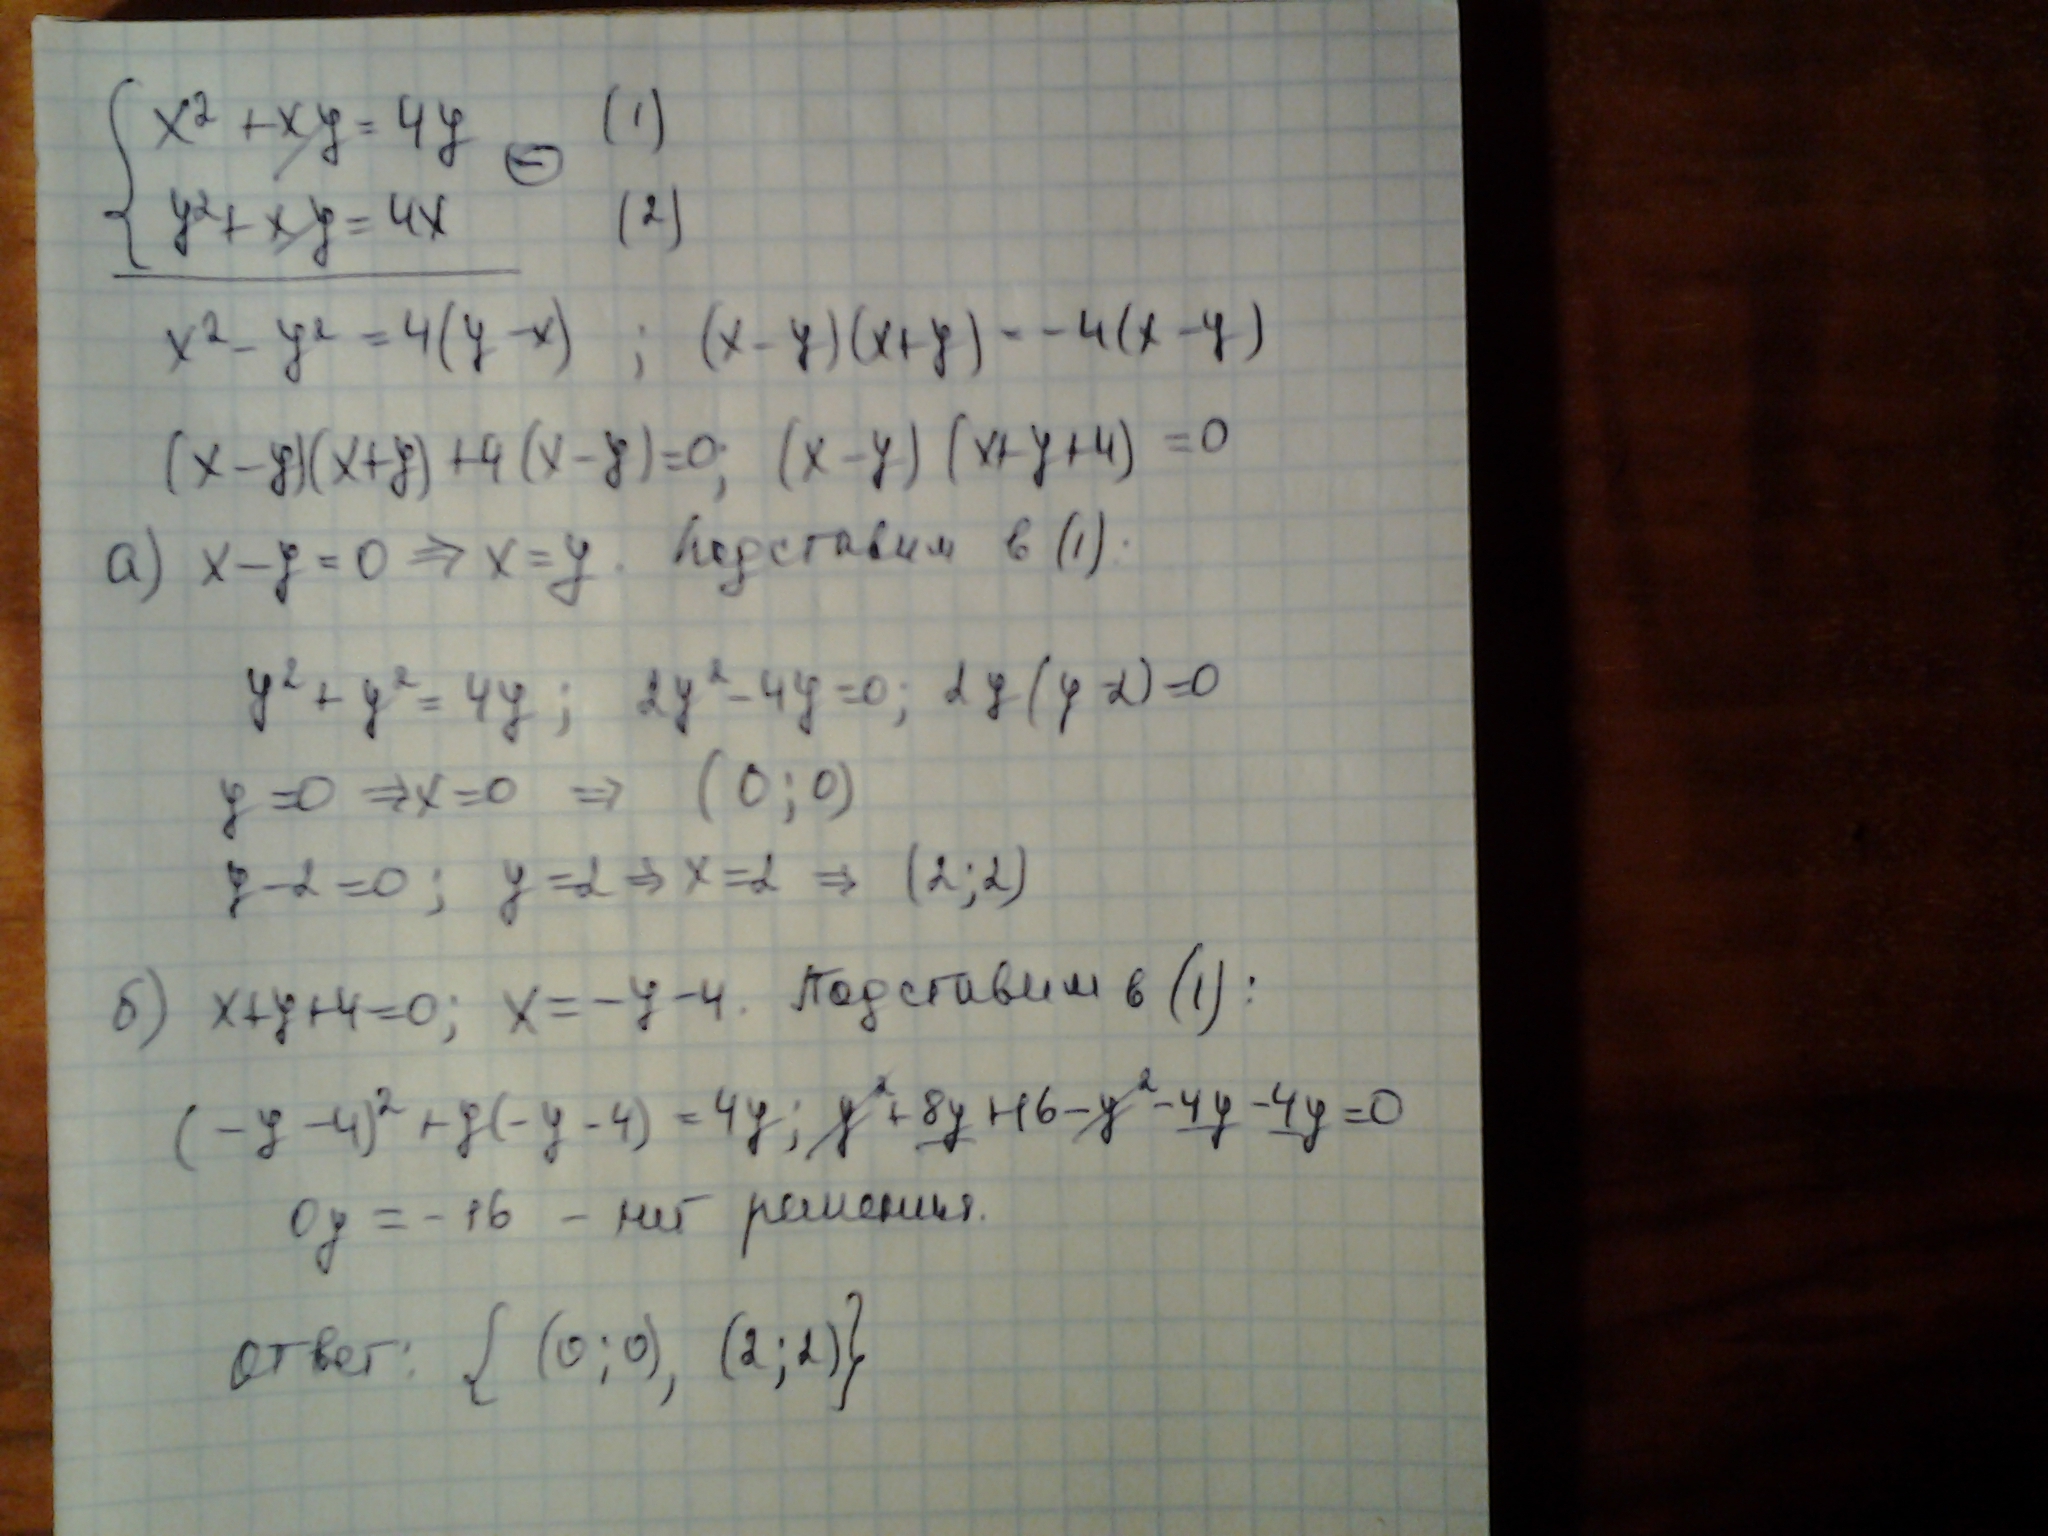 { x² + xy = 4y ⊖ (1)
y² + xy = 4x (2)
x² - y² = 4(y - x) ; (x - y)(x + y) = -4(x - y)
(x - y)(x + y) + 4(x - y) = 0; (x - y)(x + y + 4) = 0
а) x - y = 0 ⇒ x = y. Подставим в (1):
y² + y² = 4y; 2y² - 4y = 0; 2y(y - 2) = 0
y = 0 ⇒ x = 0 ⇒ (0; 0)
y - 2 = 0; y = 2 ⇒ x = 2 ⇒ (2; 2)
б) x + y + 4 = 0; x = -y - 4. Подставим в (1):
(-y - 4)² + y(-y - 4) = 4y; y² + 8y + 16 - y² - 4y - 4y = 0
0y = -16 - нет решения.
ответ: { (0; 0), (2; 2)}